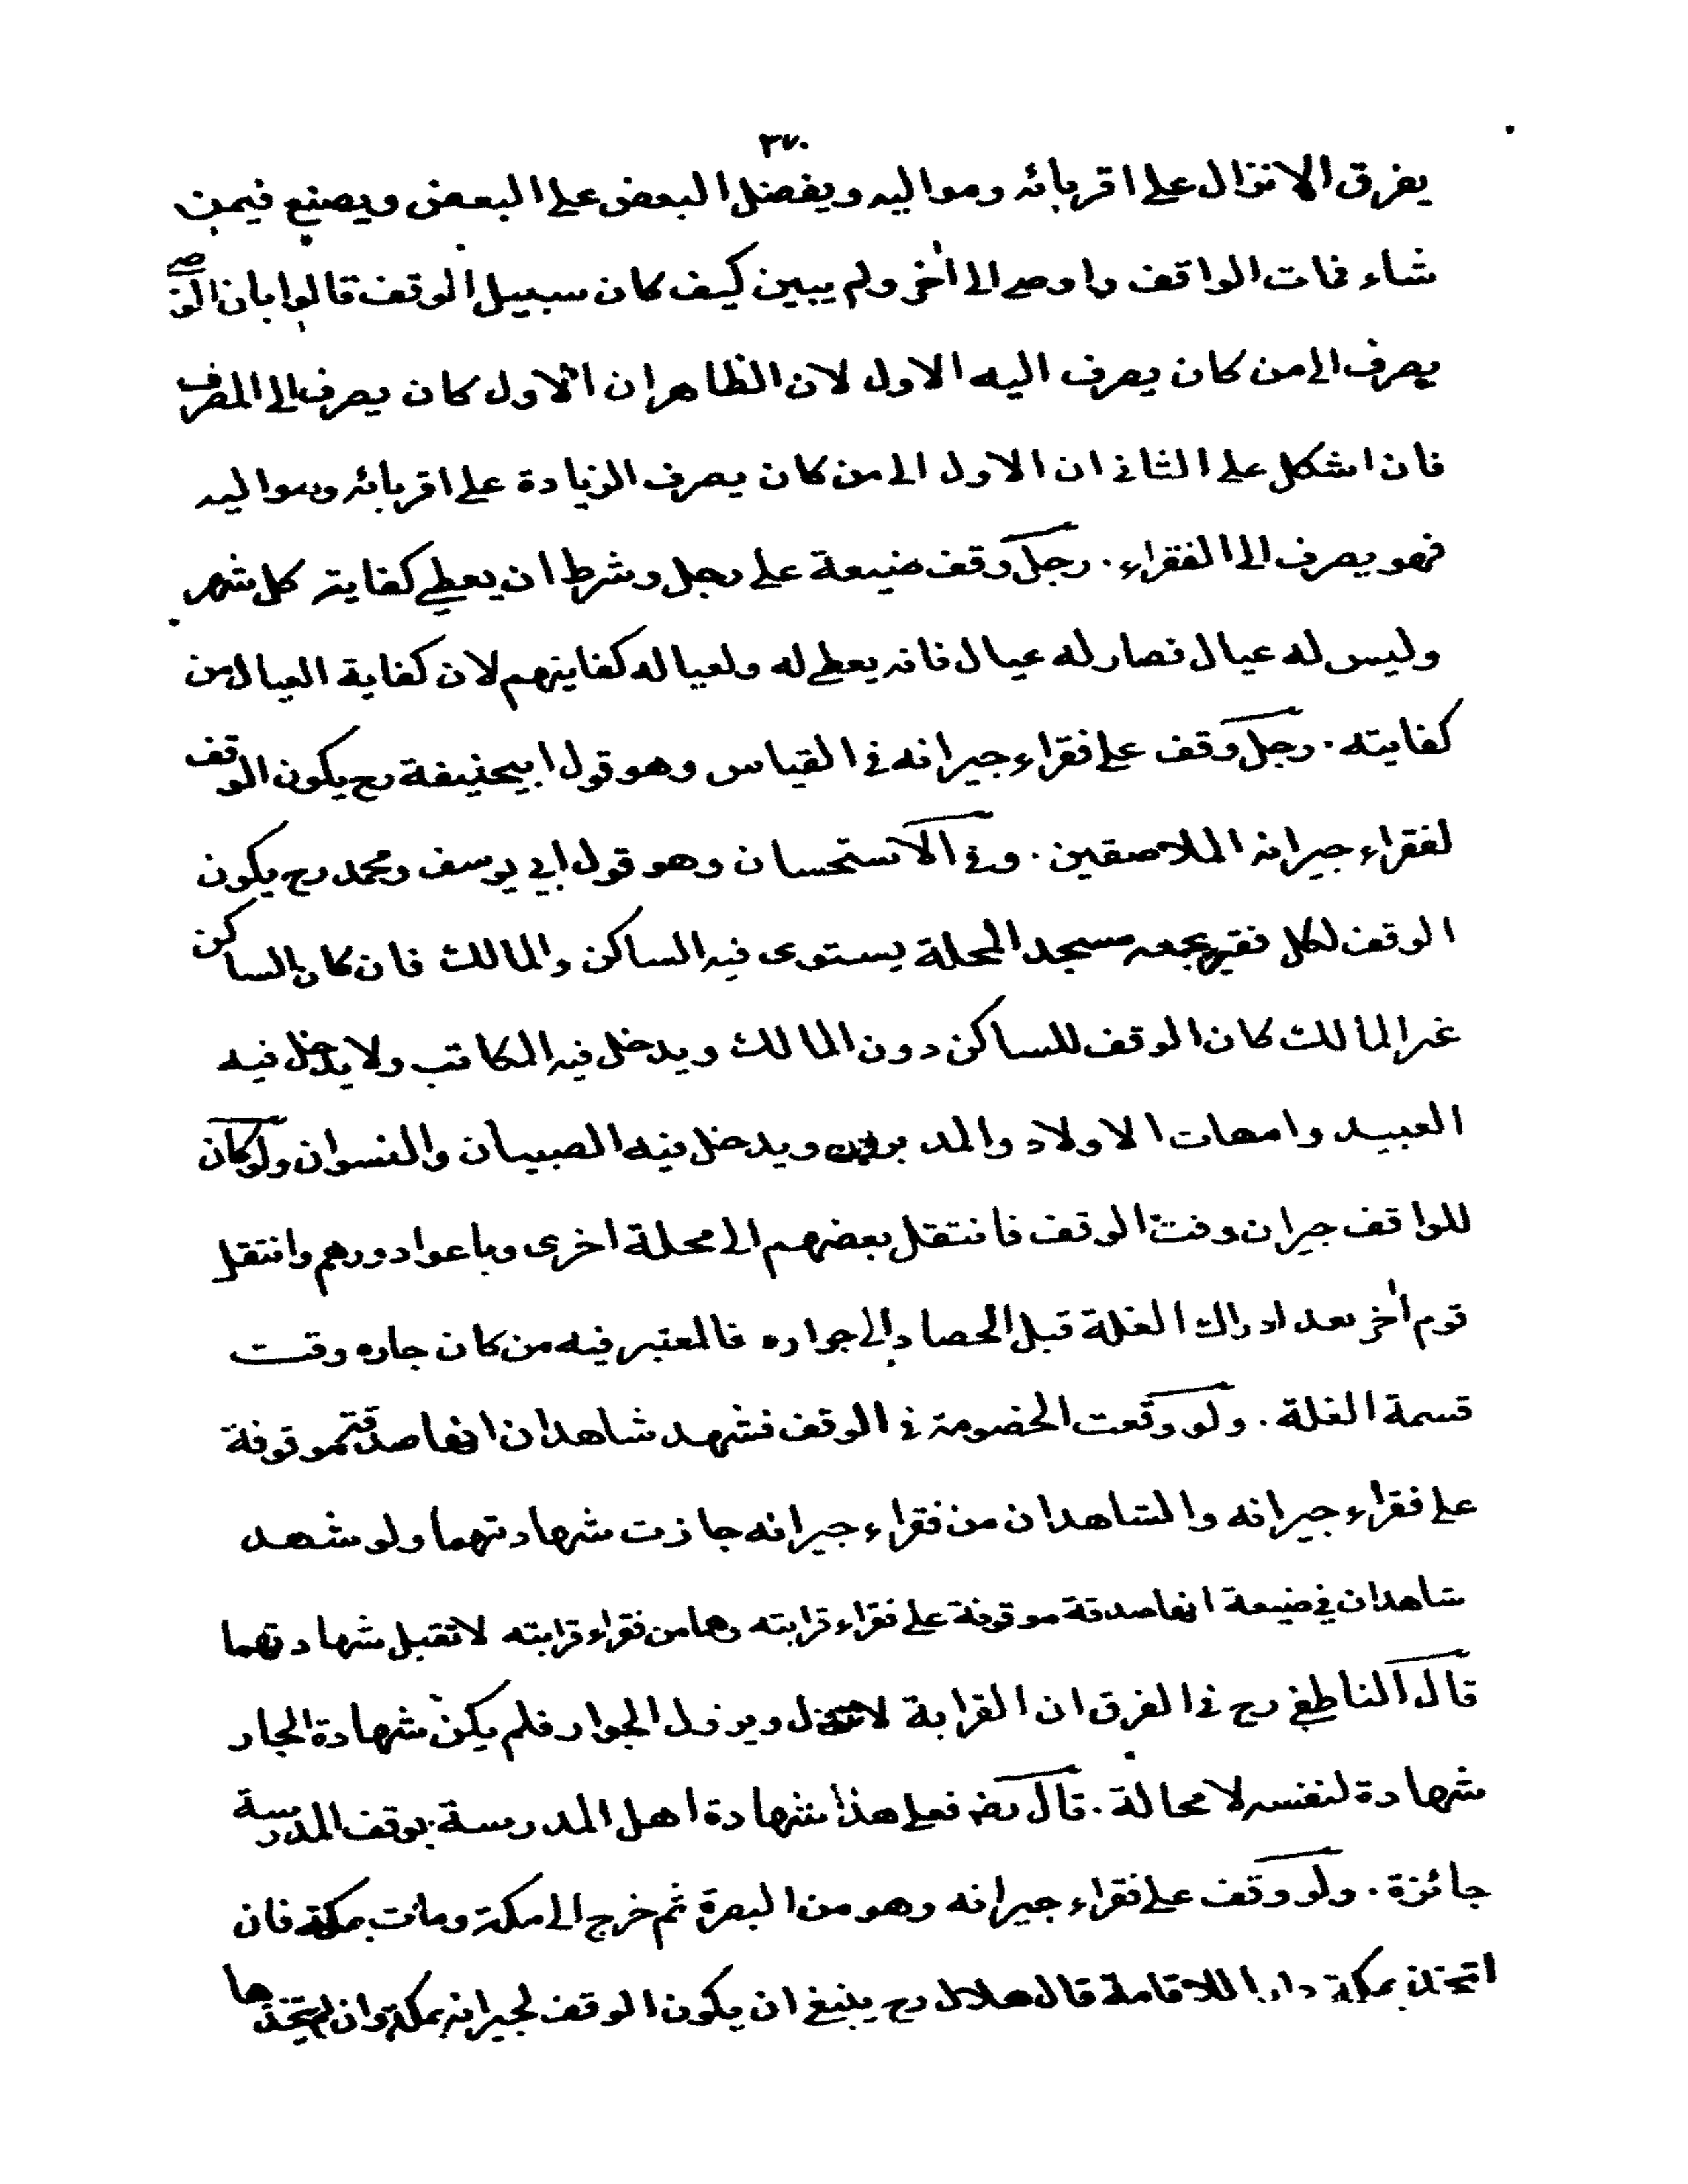 ٣٧٠
يفرق الانزال على اقربائه ومواليه ويفضل البعض على البعض ويصنع فيمن
شاء فمات الواقف واوصى الى اٰخر ولم يبين كيف كان سبيل الوقف قالوا بان الوصى
يصرف الى من كان يصرف اليه الاول لان الظاهر ان الاول كان يصرف الى المصرف
فان اشكل على الثانى ان الاول الى من كان يصرف الزيادة على اقربائه ومواليه
فهو يصرف الى الفقراء . رجل وقف ضيعة على رجل وشرط ان يعطى كفايته كل شهر
وليس له عيال فصار له عيال فانه يعطى له ولعياله كفايتهم لان كفاية العيال من
كفايته . رجل وقف على فقراء جيرانه فى القياس وهو قول ابيحنيفة رح يكون الوقف
لفقراء جيرانه الملاصقين . وفى الاستحسان وهو قول ابي يوسف ومحمد رح يكون
الوقف لكل فقير يجمعه مسجد المحلة يستوى فيه الساكن والمالك فان كان الساكن
غير المالك كان الوقف للساكن دون المالك ويدخل فيه المكاتب ولا يدخل فيه
العبيد وامهات الاولاد والمدبرون ويدخل فيه الصبيان والنسوان ولو كان
للواقف جيران وقت الوقف فانتقل بعضهم الى محلة اخرى وباعوا دورهم وانتقل
قوم اٰخر بعد ادراك الغلة قبل الحصاد الى جواره فالمعتبر فيه من كان جاره وقت
قسمة الغلة . ولو وقعت الخصومة فى الوقف فشهد شاهدان انها صدقة موقوفة
على فقراء جيرانه والشاهدان من فقراء جيرانه جازت شهادتهما ولو شهد
شاهدان في ضيعة انها صدقة موقوفة على فقراء قرابته وهما من فقراء قرابته لا تقبل شهادتهما
قال الناطفى رح فى الفرق ان القرابة لا تزول ويزول الجوار فلم يكن شهادة الجار
شهادة لنفسه لا محالة . قال رضه فعلى هذا شهادة اهل المدرسة بوقف المدرسة
جائزة . ولو وقف على فقراء جيرانه وهو من البصرة ثم خرج الى مكة ومات بمكة فان
اتخذ بمكة دارا للاقامة قال هلال رح ينبغى ان يكون الوقف لجيرانه بمكة وان لم يتخذها